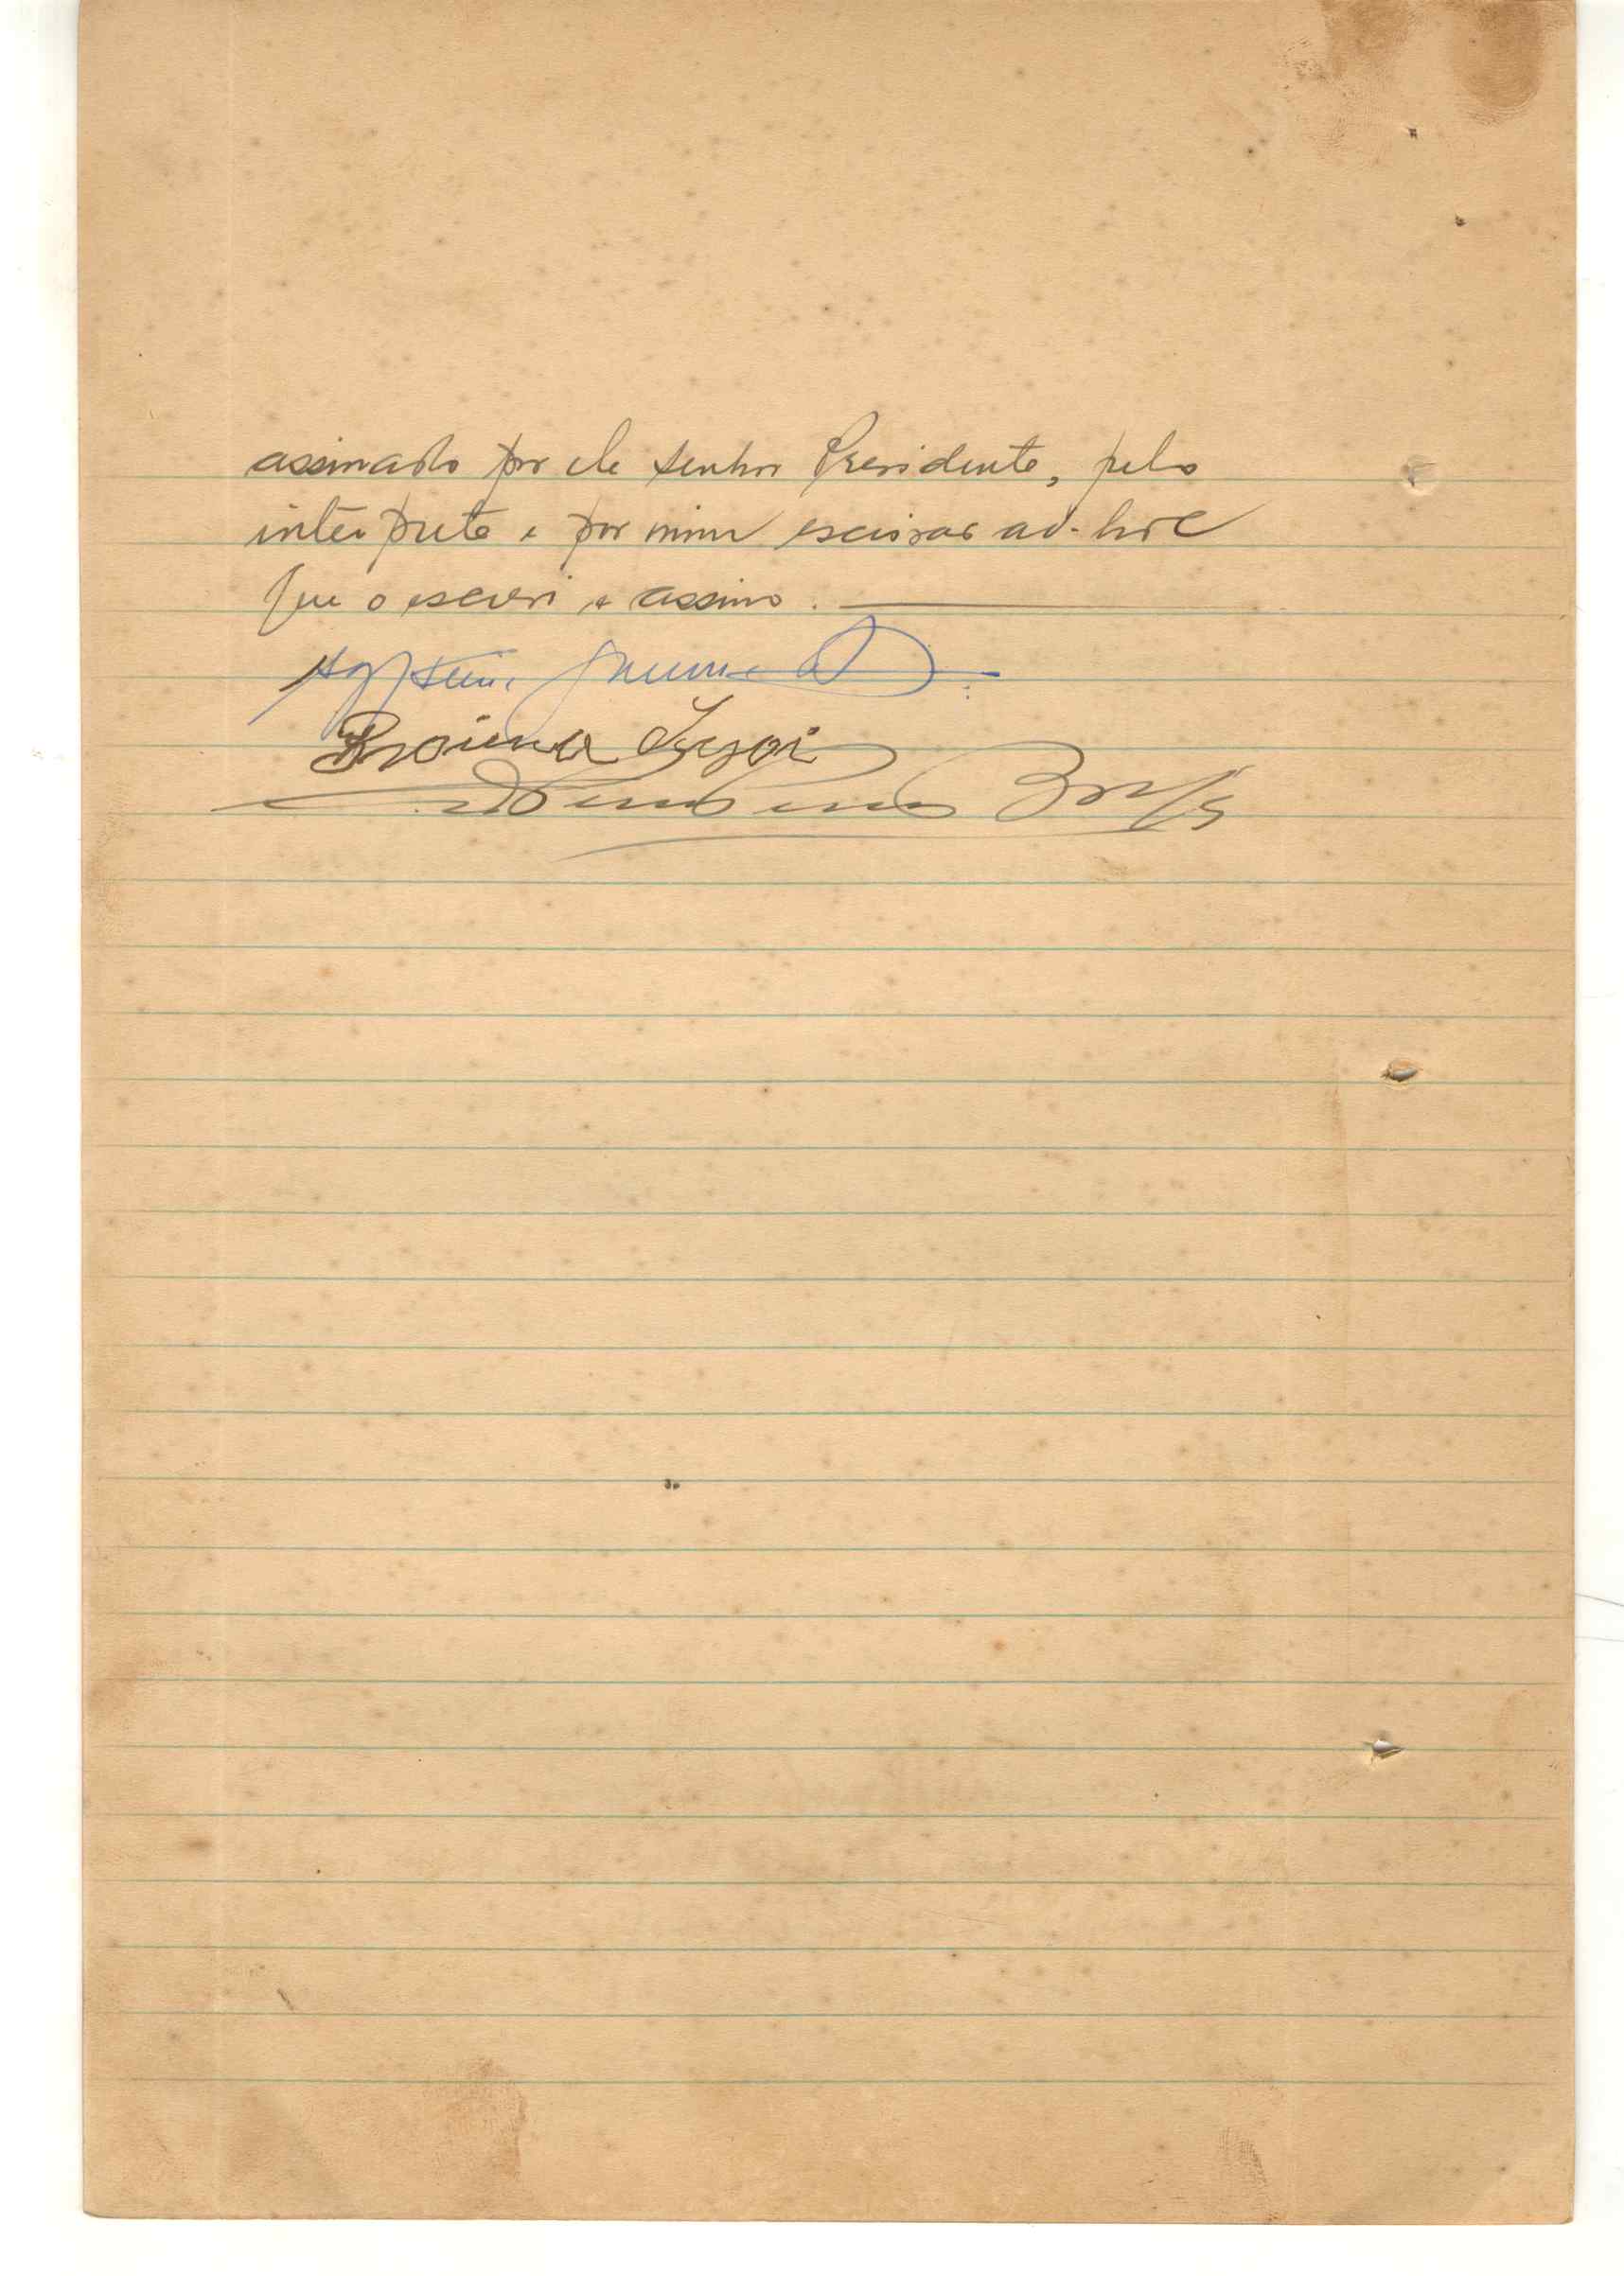 assinado por ele senhor Presidente, pelo
intérprete e por mim escrivão ad-hoc
que o escrevi e assino.